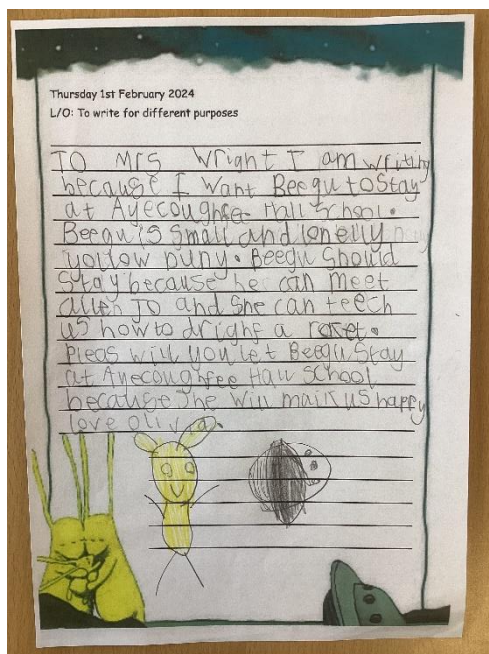 Thursday 1st February 2024
L/O: To write for different purposes
To Mrs Wright I am writing
because I want Beegu to Stay
at Ayecoughfee Hall School.
Beegu is Small and lonelly
yollow puny. Beegu Should
Stay because he can meet
alien Jo and She can teech
us how to drighe a roket.
Pleas will you let Beegu Stay
at Ayecoughfee Hall School
because She will maik us happy
love Olivia.